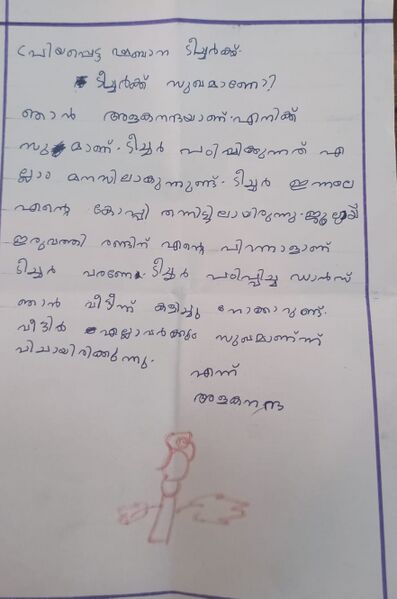 പ്രിയപ്പെട്ട ഷബാന ടീച്ചർക്ക്.
ടീച്ചർക്ക് സുഖമാണോ?
ഞാൻ അളകനന്ദയാണ്. എനിക്ക്
സുഖമാണ്. ടീച്ചർ പഠിപ്പിക്കുന്നത് എ
ല്ലാം മനസിലാകുന്നുണ്ട്. ടീച്ചർ ഇന്നലേ
എന്റെ കോപ്പി തന്നിട്ടിലായിരുന്നു. ജൂലൈ
ഇരുവത്തി രണ്ടിന് എന്റെ പിറന്നാളാണ്
ടീച്ചർ വരണേ. ടീച്ചർ പഠിപ്പിച്ച ഡാൻസ്
ഞാൻ വീട്ടീന്ന് കളിച്ചു നോക്കാറുണ്ട്.
വീട്ടിൽ എല്ലാവർക്കും സുഖമാണ്ന്ന്
വിചായിരിക്കുന്നു.
എന്ന്
അളകനന്ദ